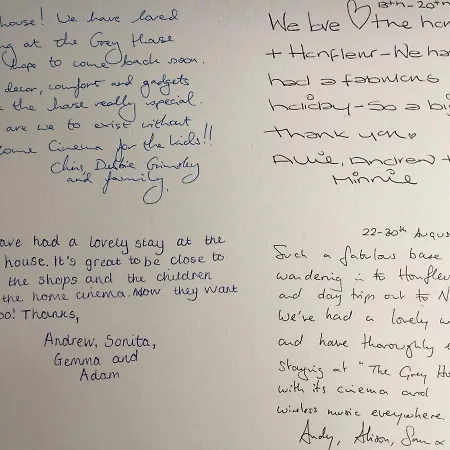 house! We have loved
at the Grey House
hope to come back soon.
decor, comfort and gadgets
the house really special.
are we to exist without
Cinema for the kids!!
Chris, Debbie Grimsley
and family.
have had a lovely stay at the
house. It's great to be close to
the shops and the children
the home cinema. Now they want
too! Thanks,
Andrew, Sonita,
Gemma and
Adam
13th - 20th
We love ♡ the hou
+ Honfleur - We ha
had a fabulous
holiday - So a big
thank you
Allie, Andrew +
Minnie
22-30th Augus
Such a fabulous base
wandering in to Honfle
and day trips out to N
We've had a lovely w
and have thoroughly e
staying at "The Grey Ho
with its cinema and
wireless music everywhere.
Andy, Alison, Sam &